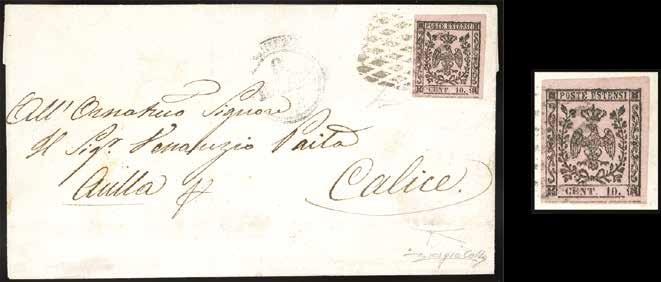 POSTE ESTENSI
CENT. 10. 9
All' Ornatmo Signore
Il Sigr Venanzio Paita
Aulla
Calice.
POSTE ESTENSI
CENT. 10. 9